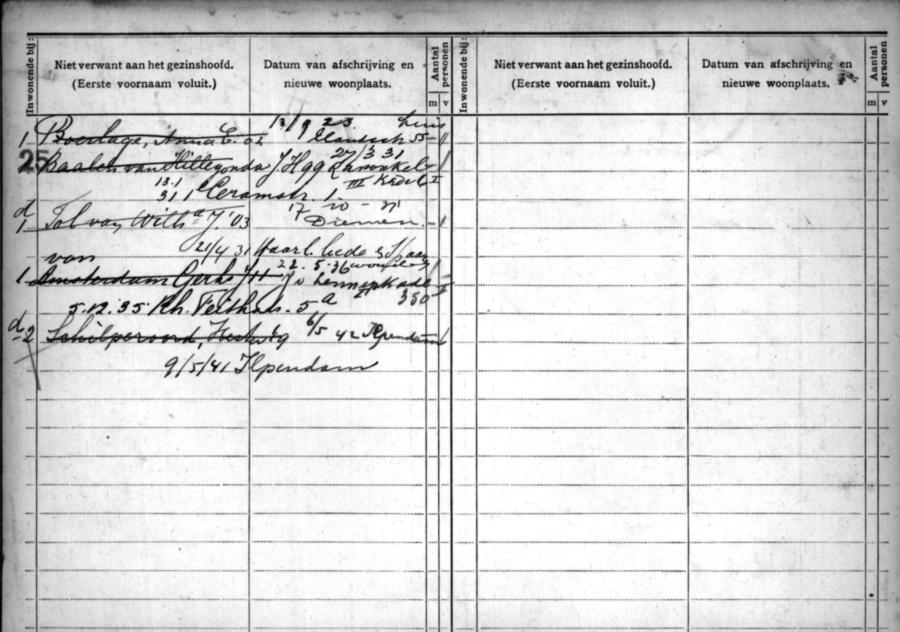 Inwonende bij: Niet verwant aan het gezinshoofd. (Eerste voornaam voluit.) Datum van afschrijving en nieuwe woonplaats. Aantal personen m v Inwonende bij: Niet verwant aan het gezinshoofd. (Eerste voornaam voluit.) Datum van afschrijving en nieuwe woonplaats. Aantal personen m v
13/9 23
1 Boerlage, Anna C. 02 55 - 1
27/3 31
25 Baalen van Hillegonda J. H 99
III
13.1
31 1 Ceramstr. 10
d 17 - 10 - 31
1 Tol van Witha J. '03 Diemen - 1
21/4 31 Haarl. liede & Spaar
von 22. 5. 36
1 Amsterdam Gerh J H J v Lennepkade II
5.12.35 Rh. Feithstr. 5 a 350 II
d 2 Schilperoord, Hedwig 6/5 42 Ilpendam 1
9/5/41 Ilpendam